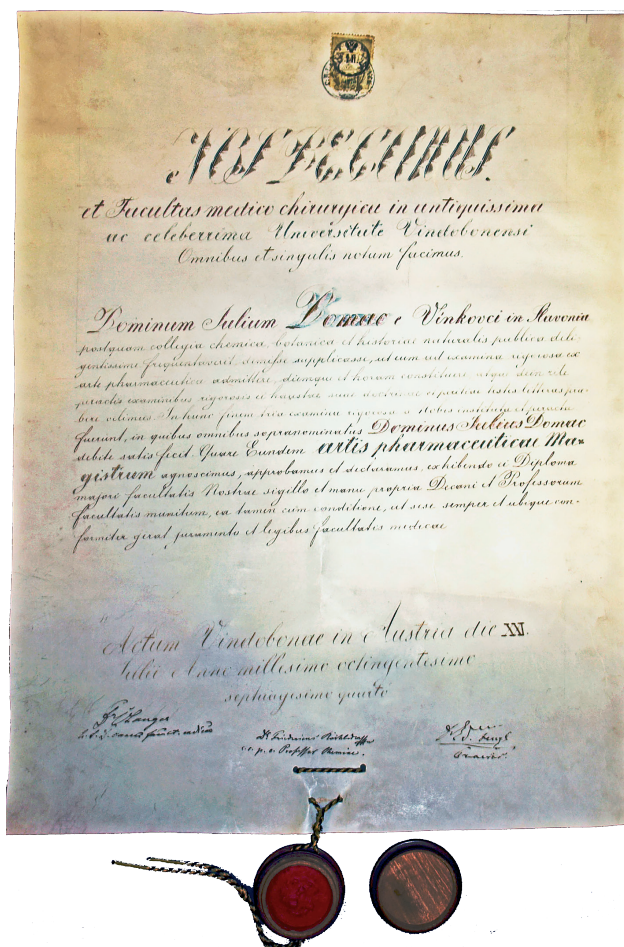 NOS DECANUS
et Facultas medico chirurgica in antiquissima
ac celeberrima Universitate Vindobonensi
Omnibus et singulis notum facimus.
Dominum Julium Domac e Vinkovci in Slavonia
postquam collegia chemica, botanica et historiae naturalis publica dili-
gentissime frequentavisset, demisse supplicasse, ut eum ad examina rigorosa ex
arte pharmaceutica admittere, diemque et horam constituere
peractis examinibus rigorosis
In hunc finem tria examina rigorosa a Nobis instituta et peracta
fuerunt, in quibus omnibus supranominatus Dominus Julius Domac
debite satisfecit. Quare Eundem artis pharmaceuticae Ma-
gistrum agnoscimus, approbamus et declaramus, exhibendo ei Diploma
majori facultatis Nostrae sigillo et manu propria Decani et Professorum
facultatis munitum, ea tamen cum conditione, ut sese semper et ubique con-
formiter gerat juramento et legibus facultatis medicae
Actum Vindobonae in Austria die XV.
Julii Anno millesimo octingentesimo
septuagesimo quarto